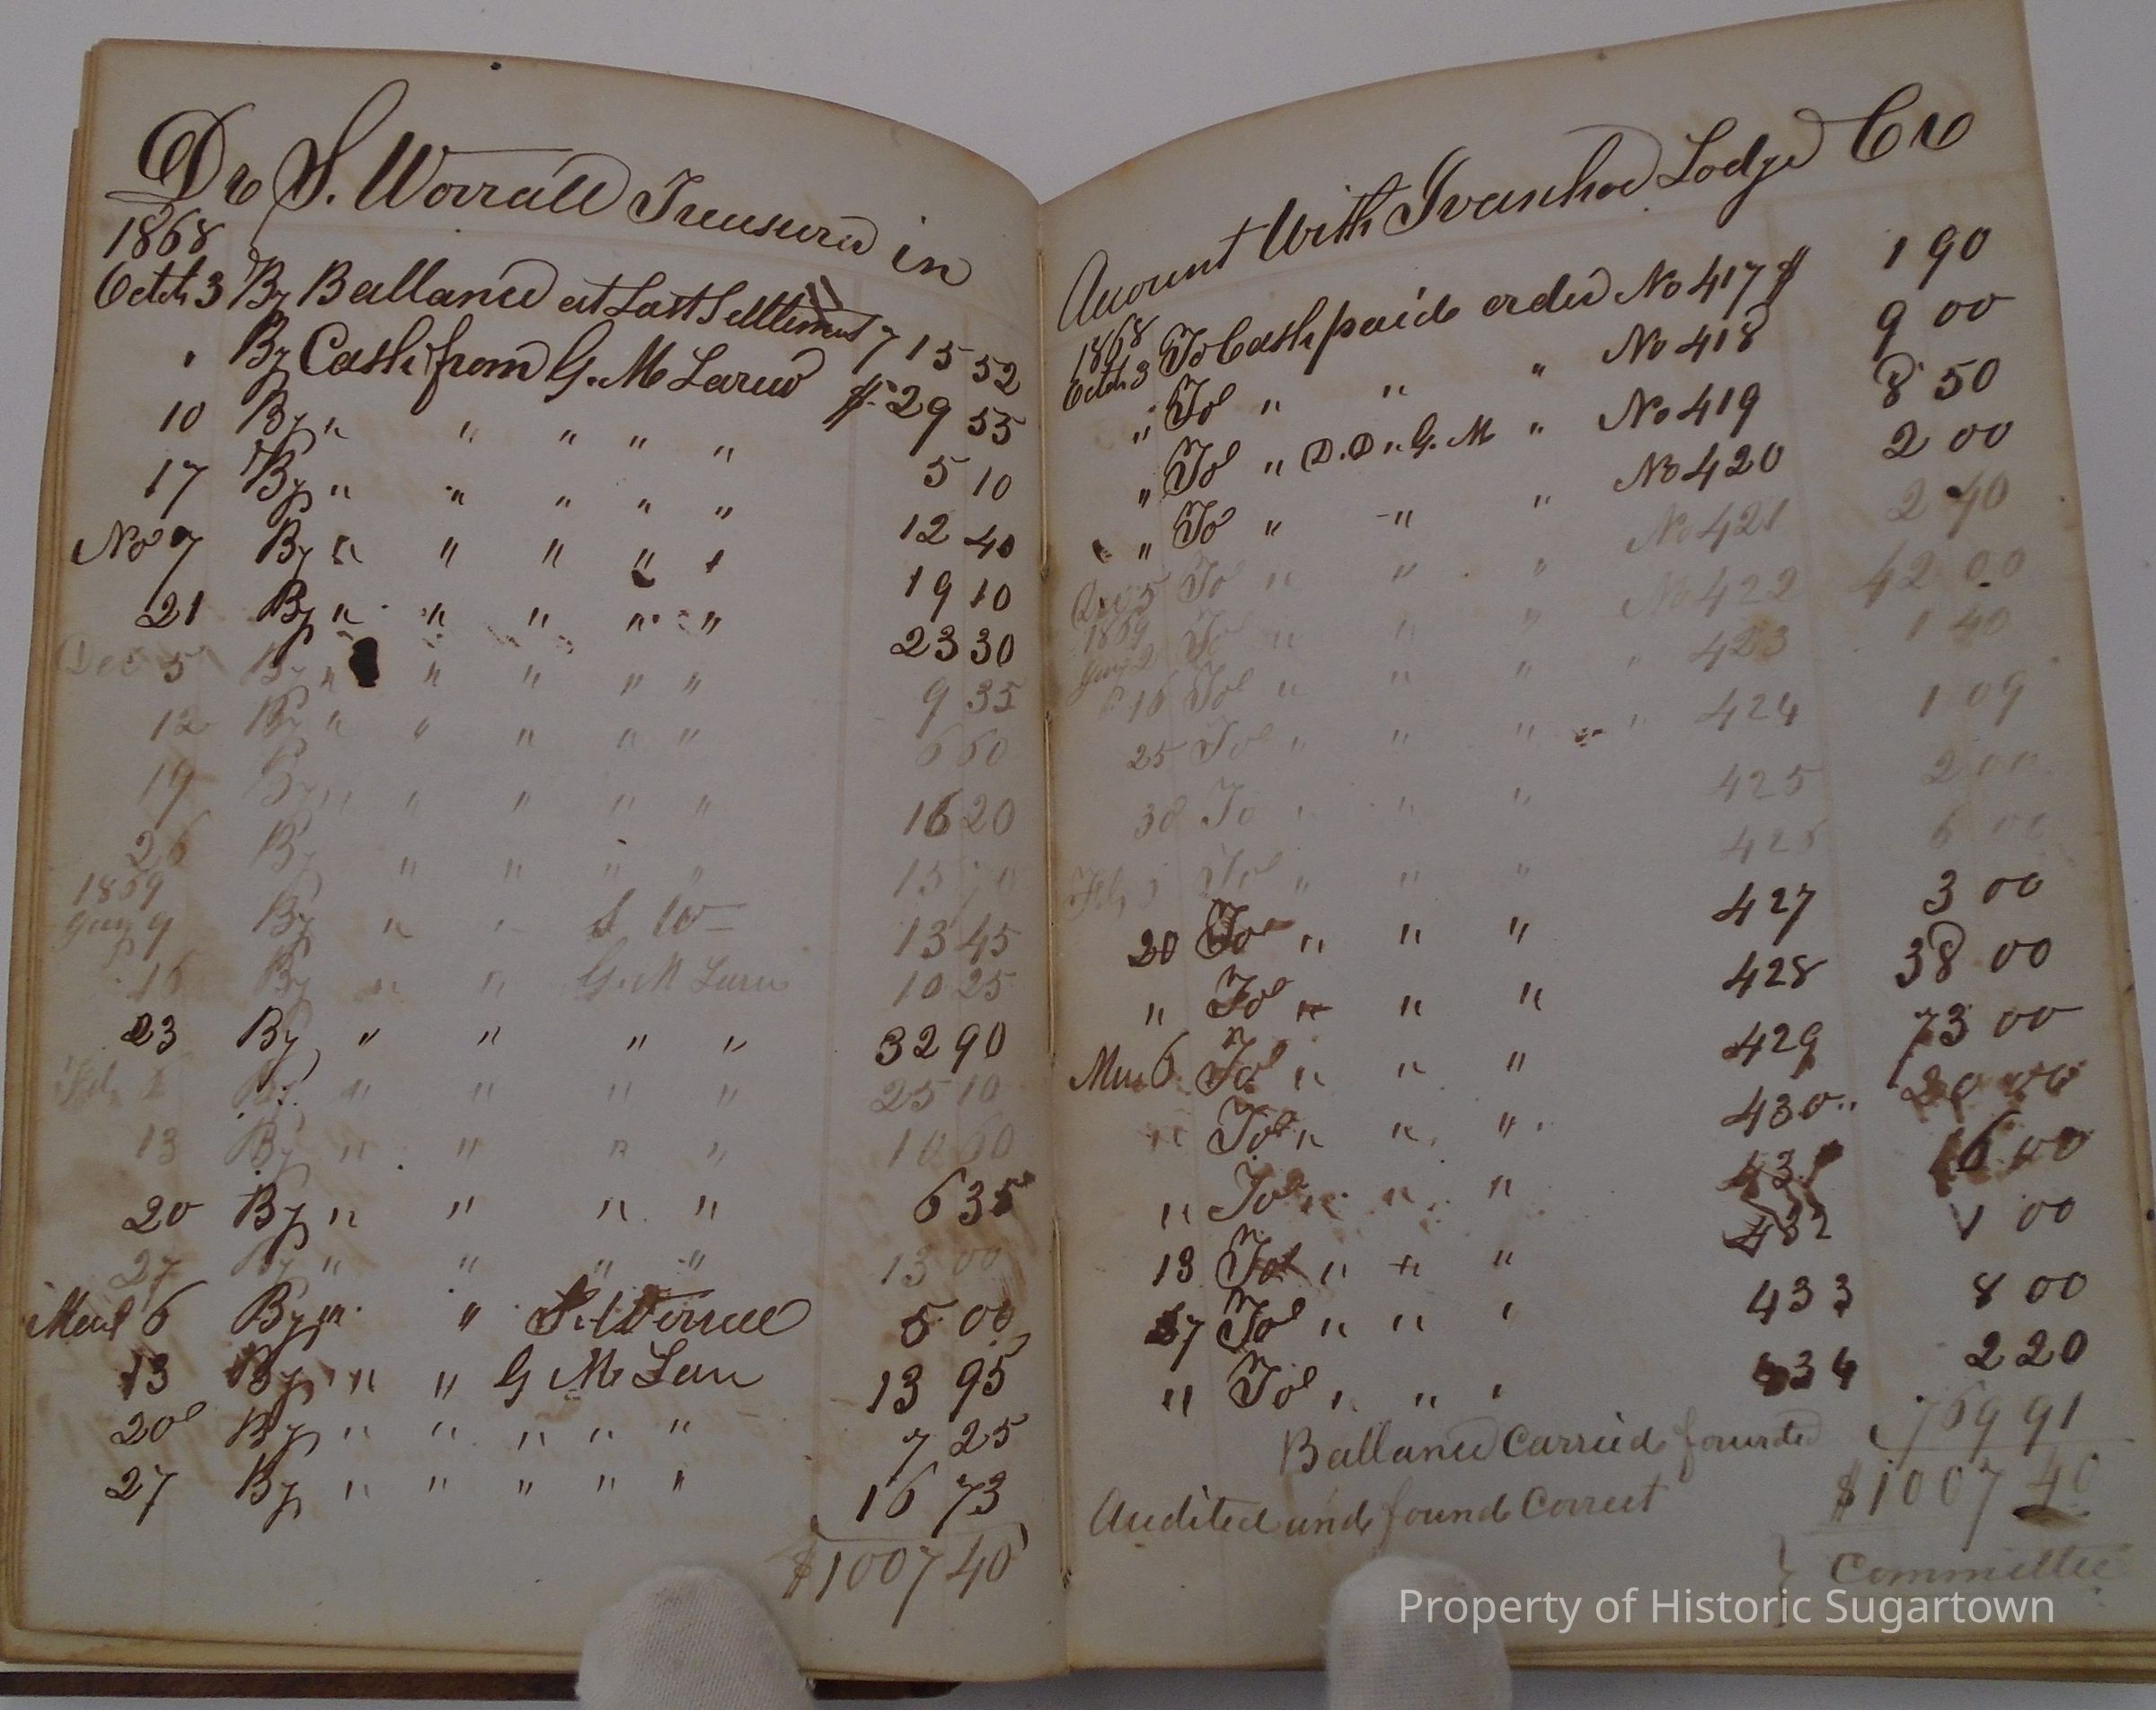 Dr S. Worrall Treasurer in
1868
Octth 3 By Ballance at Last Settlement 715 52
" By Cash from G. M Larew $ 29 55
10 By " " " " " 5 10
17 By " " " " " 12 40
Nov 7 By " " " " " 19 10
21 By " " " " " 23 30
Dec 5 By " " " " " 9 35
12 By " " " " " 6 60
19 By " " " " " 16 20
26 By " " " " 15
1869
Jany 9 By " " S W 13 45
16 By " " G. M Larew 10 25
23 By " " " " 32 90
Feb By " " " " 25 10
13 By " " " " 10 60
20 By " " " " 6 35
27 By " " " " 13 00
March 6 By " " S. Worrall 5 00
13 By " " G M Lan 13 95
20 By " " " " " 7 25
27 By " " " " " 16 73
$1007 40
Account With Ivanhoe Lodge Cr
1868
Octth 3 To Cash paid order No 417 $ 1 90
" To " " " No 418 9 00
" To " D. D. G. M " No 419 8 50
" To " " " No 420 2 00
Dec 5 To " " " No 421 2 40
1869
Jany 2 To " " " No 422 42 00
" 16 To " " " " 423 1 40
25 To " " " " 424 1 09
30 To " " " 425 2 00
Feb To " " " 426 6 00
20 To " " " 427 3 00
" To " " " 428 38 00
Mar 6 To " " " 429 73 00
" To " " " 430 " 20 00
" To " " " 431 16 00
13 To " " " 432 1 00
27 To " " " 433 8 00
" To " " " 434 2 20
Ballance Carried forward 769 91
$1007 40
Audited and found Correct
} Committee
Property of Historic Sugartown